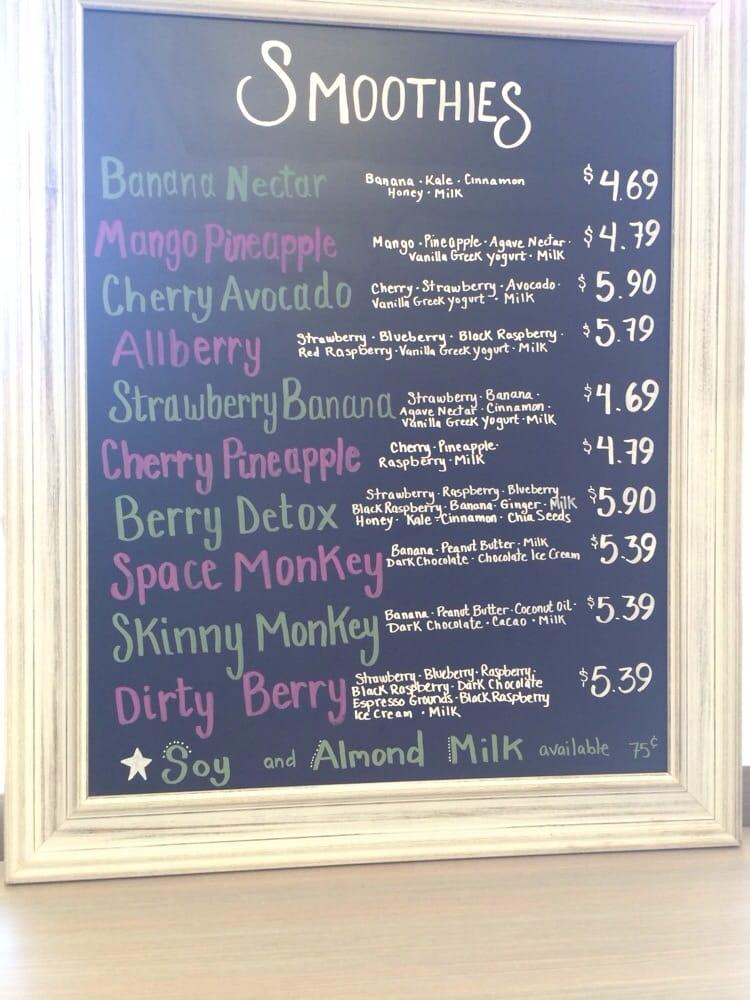 SMOOTHIES
Banana Nectar Banana · Kale · Cinnamon $4.69
Honey · Milk
Mango Pineapple Mango · Pineapple · Agave Nectar · $4.79
Vanilla Greek yogurt · Milk
Cherry Avocado Cherry · Strawberry · Avocado · $5.90
Vanilla Greek yogurt · Milk
Allberry Strawberry · Blueberry · Black Raspberry · $5.79
Red Raspberry · Vanilla Greek yogurt · Milk
Strawberry Banana Strawberry · Banana · $4.69
Agave Nectar · Cinnamon ·
Vanilla Greek yogurt · Milk
Cherry Pineapple Cherry · Pineapple · $4.79
Raspberry · Milk
Berry Detox Strawberry · Raspberry · Blueberry $5.90
Black Raspberry · Banana · Ginger · Milk
Honey · Kale · Cinnamon · Chia Seeds
Space Monkey Banana · Peanut Butter · Milk $5.39
Dark Chocolate · Chocolate Ice Cream
Skinny Monkey Banana · Peanut Butter · Coconut Oil · $5.39
Dark Chocolate · Cacao · Milk
Dirty Berry Strawberry · Blueberry · Raspberry · $5.39
Black Raspberry · Dark Chocolate
Espresso Grounds · Black Raspberry
Ice Cream · Milk
Soy and Almond Milk available 75¢